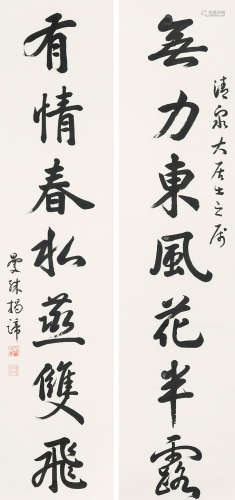 清泉大居士之屬
無力東風花半露
有情春水燕雙飛
曼殊揭諦